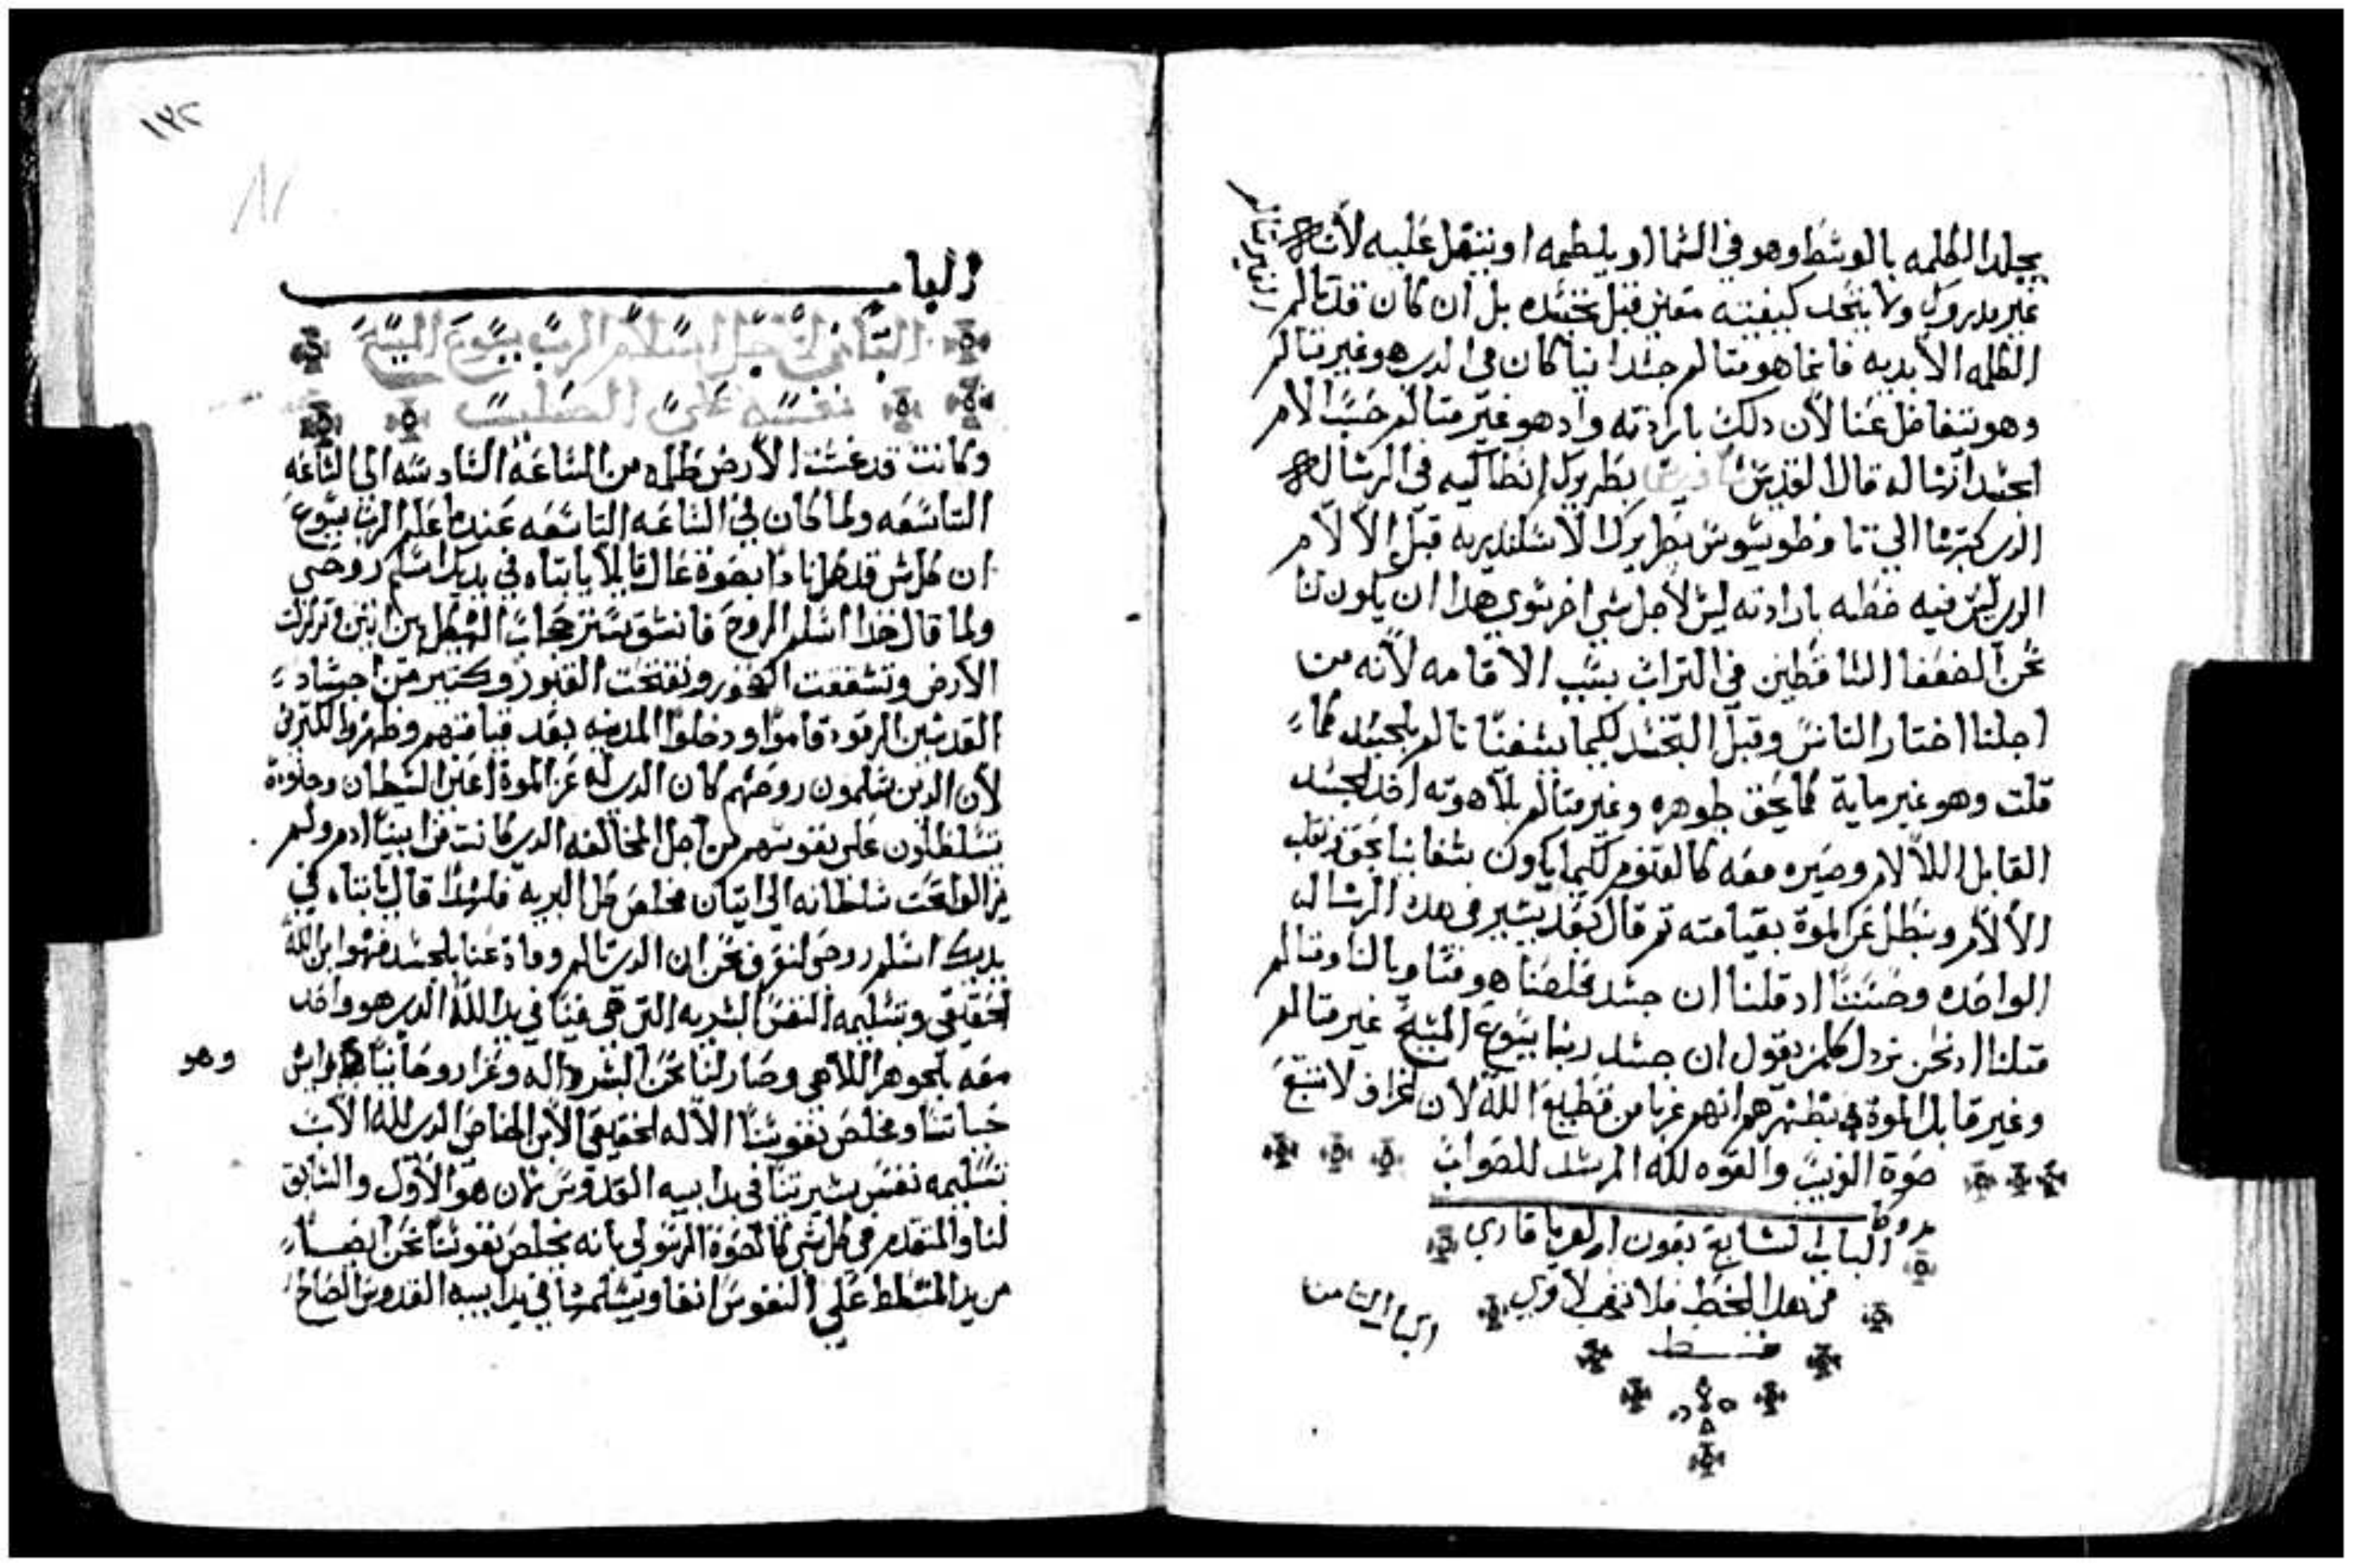 يجلد الكلمه بالوسط وهو في السما او يلطمه او يتفل عليه لأنه
غير مدروك ولا يتحد كيفيته معين قبل تجسده بل ان كان قد تالم
الكلمه الأبديه فانما هو متالم جسدانيا كان في الدي هو غير متالم
الغير متالم
وهو تتفاضل عنا لأن دلك بارادته واد هو غير متالم حسب الام
الجسد انساله قال القديس بطريرك انطاكيه في الرساله
الدي كتبها الي تاوضوسيوس بطريرك الاسكندريه قبل الالام
الدي ليس فيه خطيه بارادته ليس لأجل شي اخر سوي هدا ان يكون لنا
نحن الضعفا الساقطين في التراب بسبب الاقامه لأنه من
اجلنا اختار التانس وقبل التجسد لكيما يشفينا تالم بالجسد كما
قلت وهو غير مايت كما يحق جوهره وغير متالم بلاهوته اخد الجسد
القابل الالام وصيره معه كالقنوم لكيما يكون شفاينا بحق
الألام ويبطل عز الموة بقيامته تم قال بعد يسير في هده الرساله
الواحده وحسننا اد قلنا ان جسد مخلصنا هو مساويا لنا ومتالم
متلنا اد نحن نردل كلمن يقول ان جسد ربنا يسوع المسيح غير متالم
وغير قابل الموة ونظهرهم انهم غربا من قطيع الله لأن الخراف لا تتبع
صوة الغريب والقوه لله المرشد للصواب
الباب السابع بعون الرب يا قادي
من هدا الخط فلا تدهب لاوي
فقط
الباب التامن
١٣٢
الباب
التامن لأجل اسلام الرب يسوع المسيح
نفسه علي الصليب
وكانت قد غشت الأرض ظلمه من الساعة السادسه الي الساعه
التاسعه ولما كان في الساعه التاسعه عندما علم الرب يسوع
ان كل شي قد كمل نادا بصوة عال قايلا يا ابتاه في يديك اسلم روحي
ولما قال هدا اسلم الروح فانشق ستر حجاب الهيكل من اتنين وتزلزلت
الأرض وتشققت الصخور وتفتحت القبور وكتير من اجساد
القديسين الرقود قاموا ودخلوا المدينه بعد قيامتهم وظهروا لكتيرين
لأن الدين يسلمون روحهم كان الدي له عز الموة اعني الشيطان وجنوده
يتسلطون علي نفوسهم من اجل المخالفه الدي كانت من ابينا ادم ولم
يزالوا تحت سلطانه الي اتيان مخلص كل البريه فلهدا قال يا ابتاه في
يديك اسلم روحي لنعرف نحن ان الدي تالم وماة عنا بالجسد فهوا ابن الله
الحقيقي وبتسليمه النفس البشريه التي هي فينا في يد الله الدي هو واحد
معه بالجوهر اللاهي وصار لنا نحن البشر اله وعزا روحانيا وراس
حياتنا ومخلص نفوسنا الاله الحقيقي الابن الخاص الدي لله الآب
تسليمه نفس بشريتنا في يد ابيه القدوس لأن هو الأول والسابق
لنا والمتقدم في كل شي كالصوة الرسولي بانه يخلص نفوسنا نحن ايضا
من يد المتسلط علي النفوس انفا ويسلمها في يد ابيه القدوس الصالح
وهو